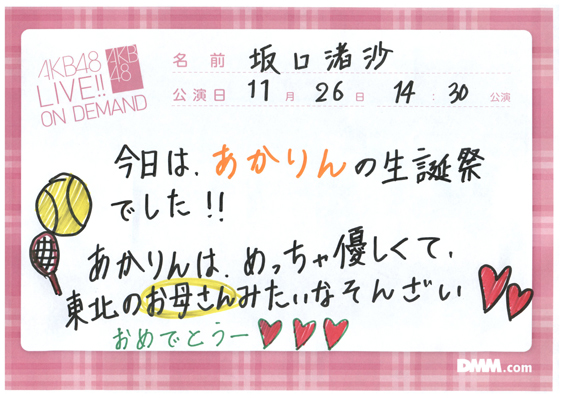 AKB48
LIVE!!
ON DEMAND
AKB
48
名前 坂口渚沙
公演日 11月26日 14:30公演
今日は、あかりんの生誕祭
でした!!
あかりんは、めっちゃ優しくて、
東北のお母さんみたいなそんざい
おめでとうー
DMM.com